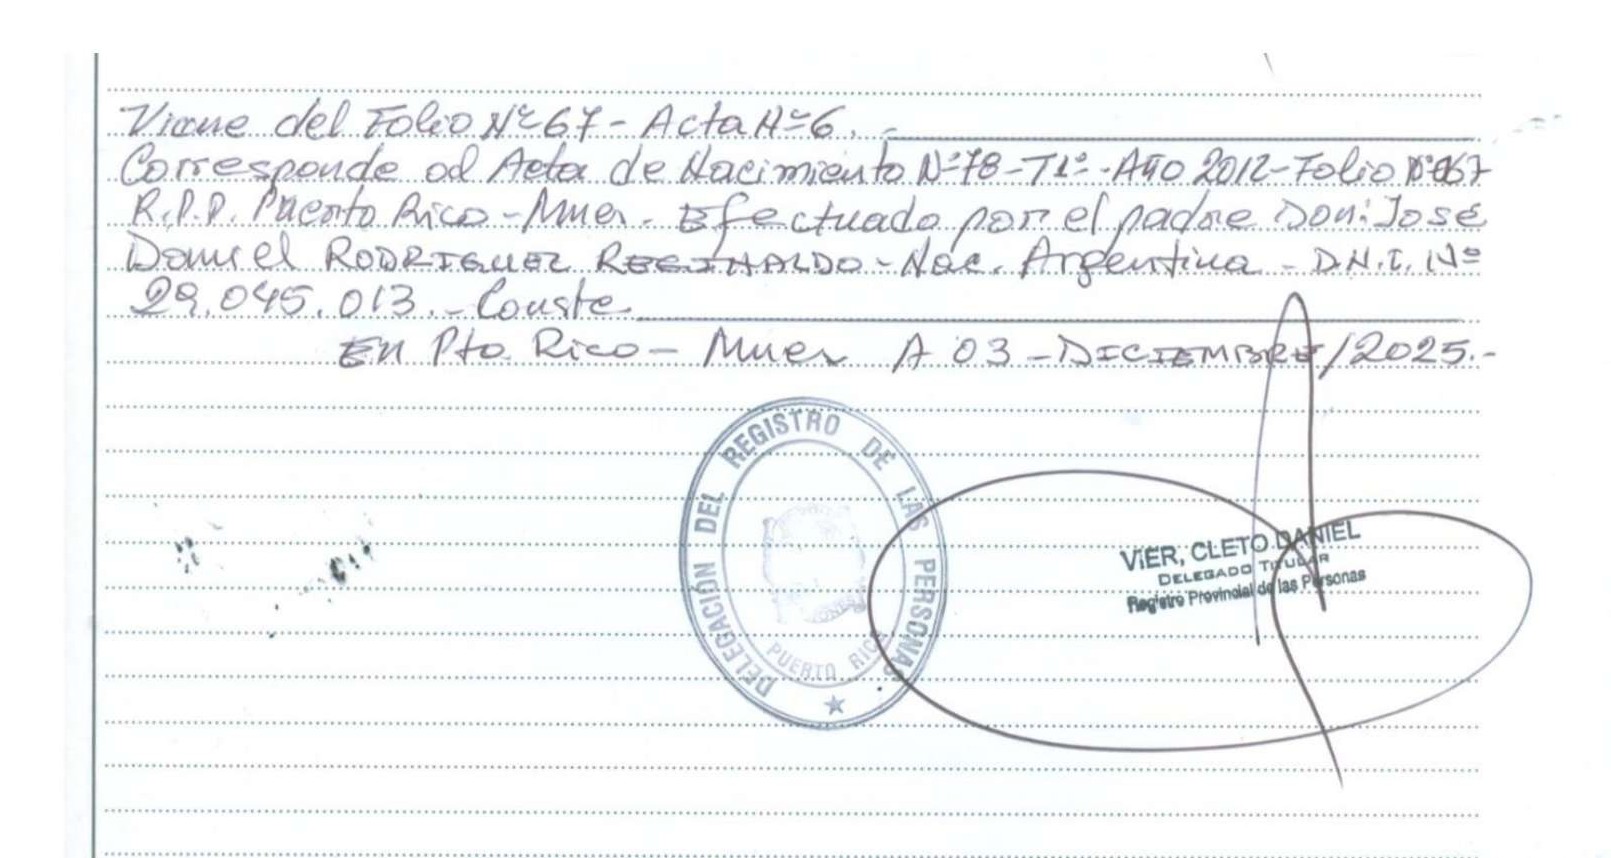 Viene del Folio Nº 67 - Acta Nº 6. -
Corresponde al Acta de Nacimiento Nº 78 - T1º - Año 2012 - Folio Nº 067
R.P.P. Puerto Rico - Mnes. Efectuado por el padre Don: José
Daniel RODRIGUEZ REGINALDO - Nac. Argentina - D.N.I. Nº
29.045.013. - Conste
En Pto Rico - Mnes A 03 - DICIEMBRE/2025.-
DELEGACIÓN DEL REGISTRO DE LAS PERSONAS
PUERTO RICO
VIER, CLETO DANIEL
DELEGADO TITULAR
Registro Provincial de las Personas